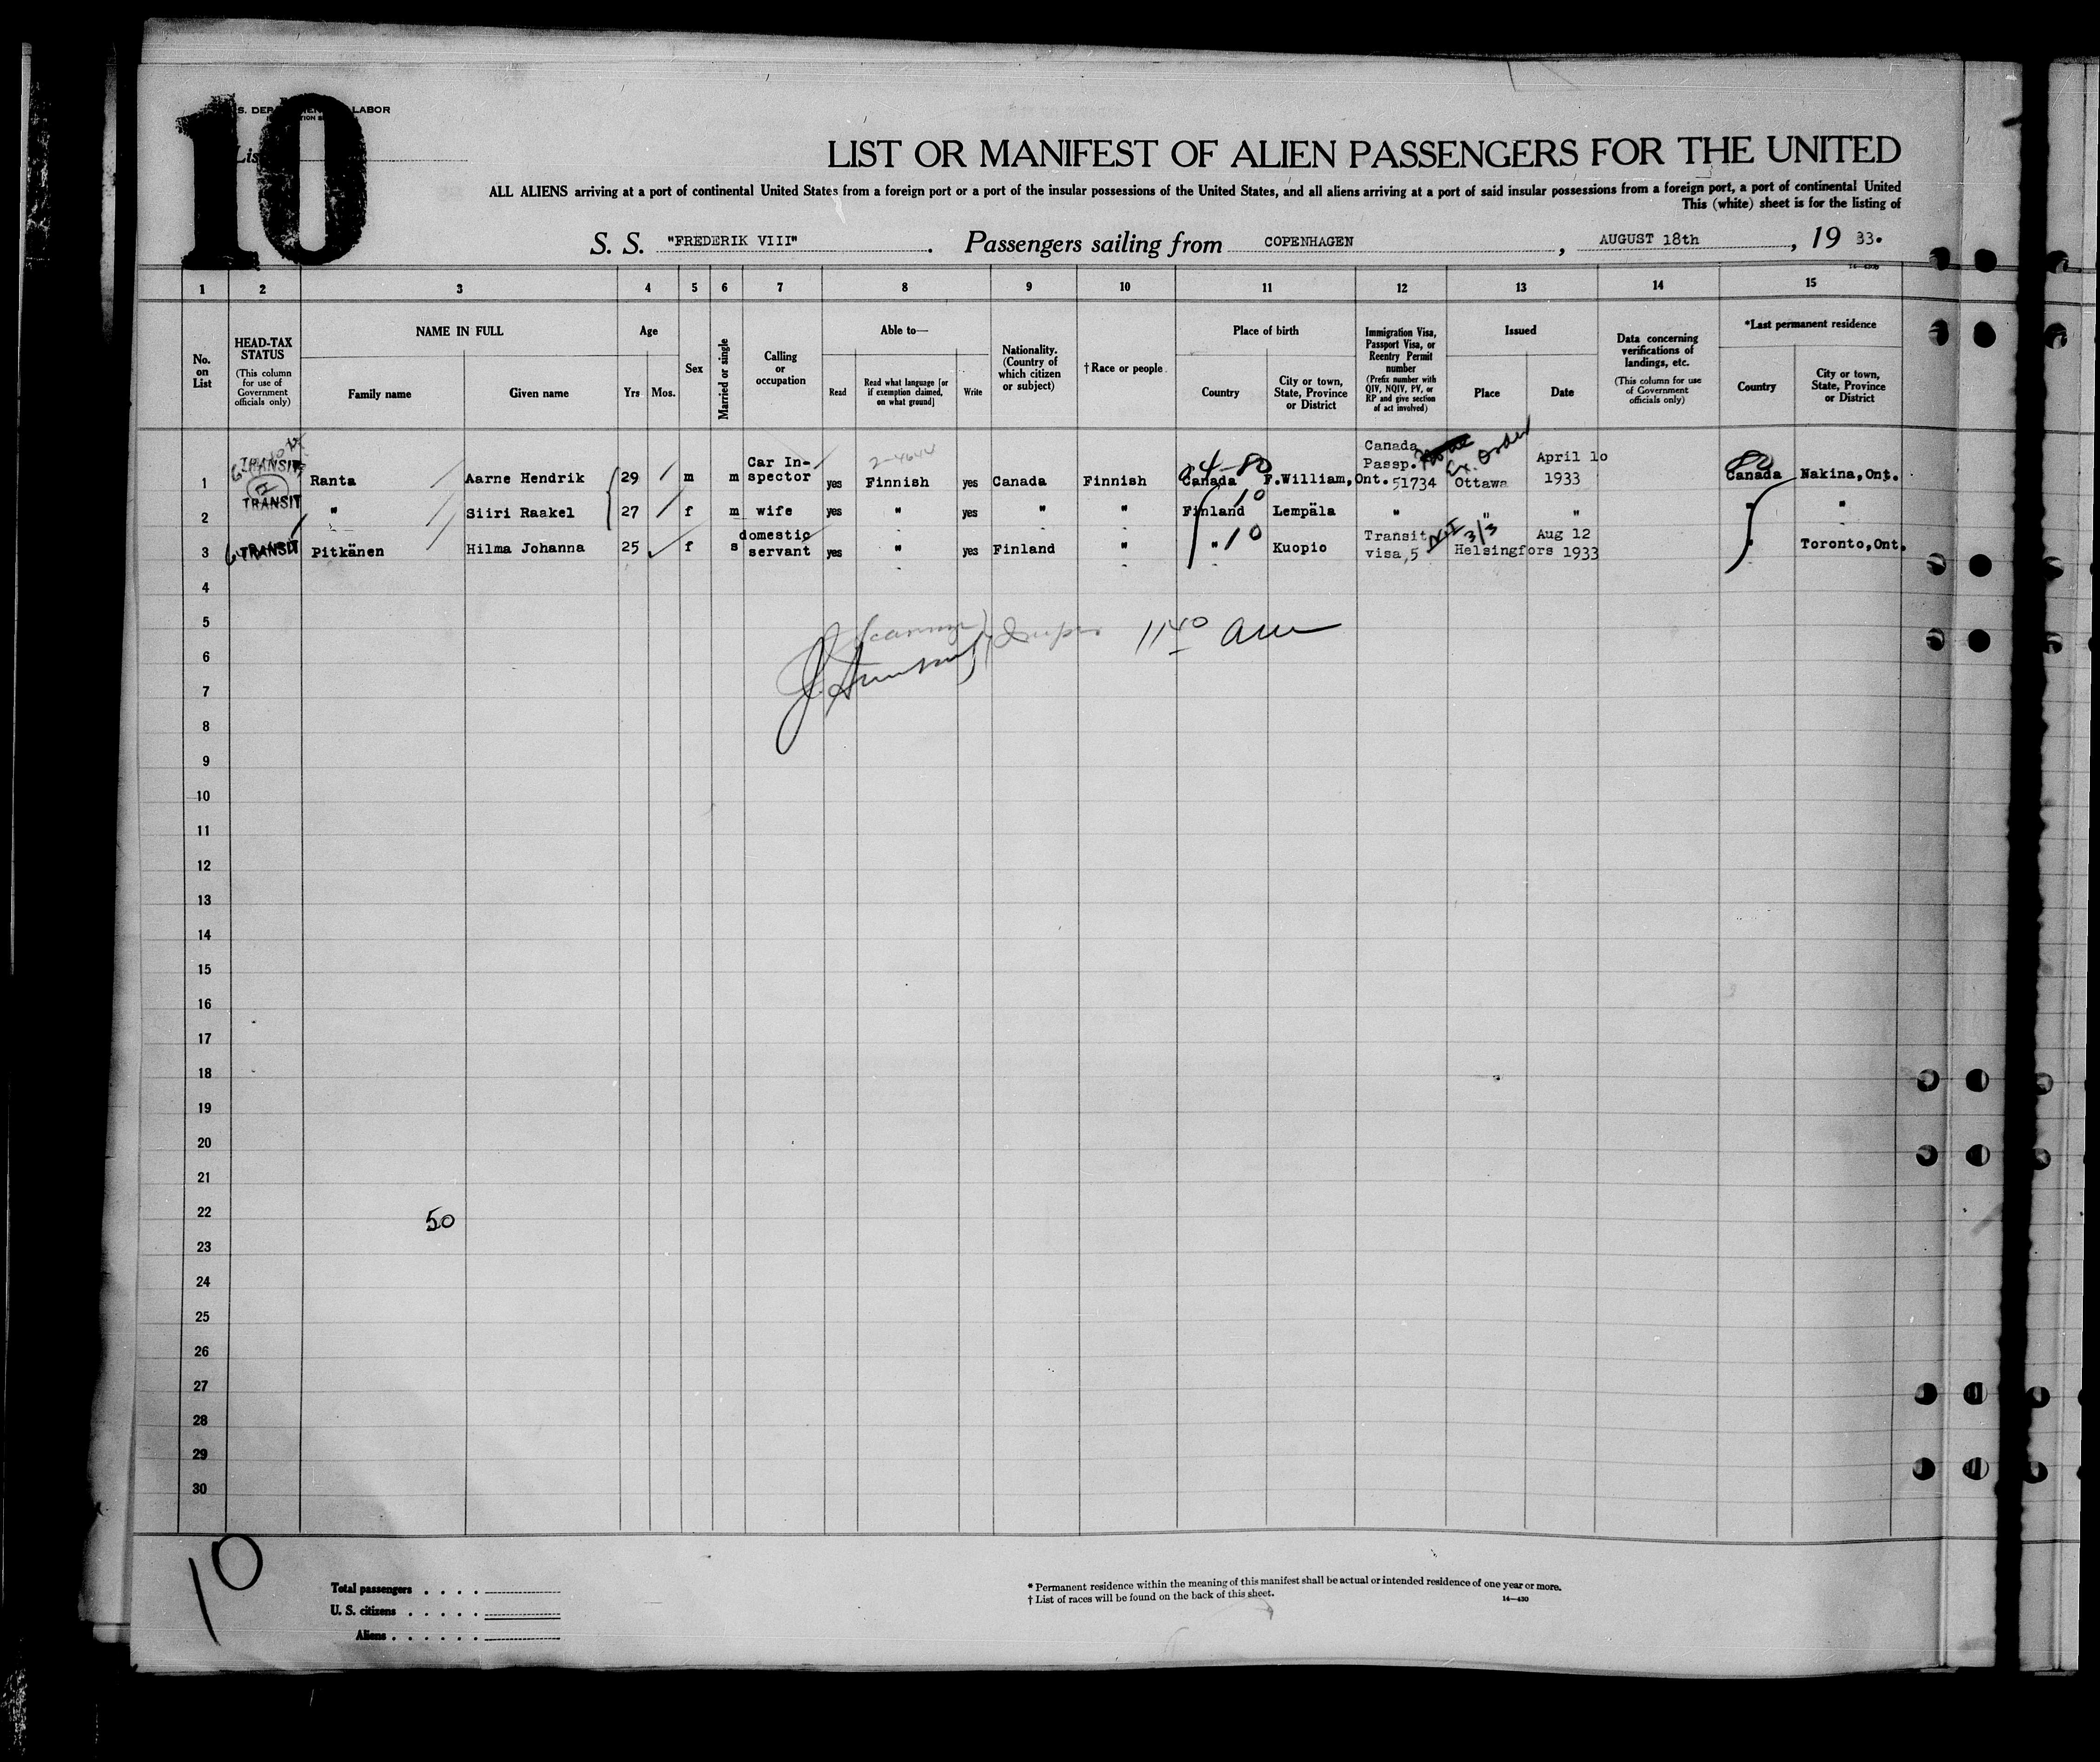 10
LABOR
LIST OR MANIFEST OF ALIEN PASSENGERS FOR THE UNITED
ALL ALIENS arriving at a port of continental United States from a foreign port or a port of the insular possessions of the United States, and all aliens arriving at a port of said insular possessions from a foreign port, a port of continental United
This (white) sheet is for the listing of
S. S. "FREDERIK VIII". Passengers sailing from COPENHAGEN, AUGUST 18th, 19 33.
1 2 3 4 5 6 7 8 9 10 11 12 13 14 15
No. on List
HEAD-TAX STATUS (This column for use of Government officials only)
NAME IN FULL
Family name
Given name
Age
Yrs Mos.
Sex
Married or single
Calling or occupation
Able to—
Read
Read what language [or if exemption claimed, on what ground]
Write
Nationality. (Country of which citizen or subject)
†Race or people
Place of birth
Country
City or town, State, Province or District
Immigration Visa, Passport Visa, or Reentry Permit number (Prefix number with QIV, NQIV, PV, or RP and give section of act involved)
Issued
Place
Date
Data concerning verifications of landings, etc. (This column for use of Government officials only)
*Last permanent residence
Country
City or town, State, Province or District
1 TRANSIT Ranta Aarne Hendrik 29 m m Car In-spector yes Finnish yes Canada Finnish Canada F.William,Ont. Canada Passp. 51734 Ex. Order Ottawa April 10 1933 Canada Nakina,Ont.
2 TRANSIT " Siiri Raakel 27 f m wife yes " yes " " Finland Lempäla " " " "
3 TRANSIT Pitkänen Hilma Johanna 25 f s domestic servant yes " yes Finland " " Kuopio Transit visa,5 Helsingfors Aug 12 1933 " Toronto,Ont.
4
5
1140 am
6
7
8
9
10
11
12
13
14
15
16
17
18
19
20
21
22
50
23
24
25
26
27
28
29
30
10
Total passengers . . . .
U. S. citizens . . . . .
Aliens . . . . . .
* Permanent residence within the meaning of this manifest shall be actual or intended residence of one year or more.
† List of races will be found on the back of this sheet.
14—430